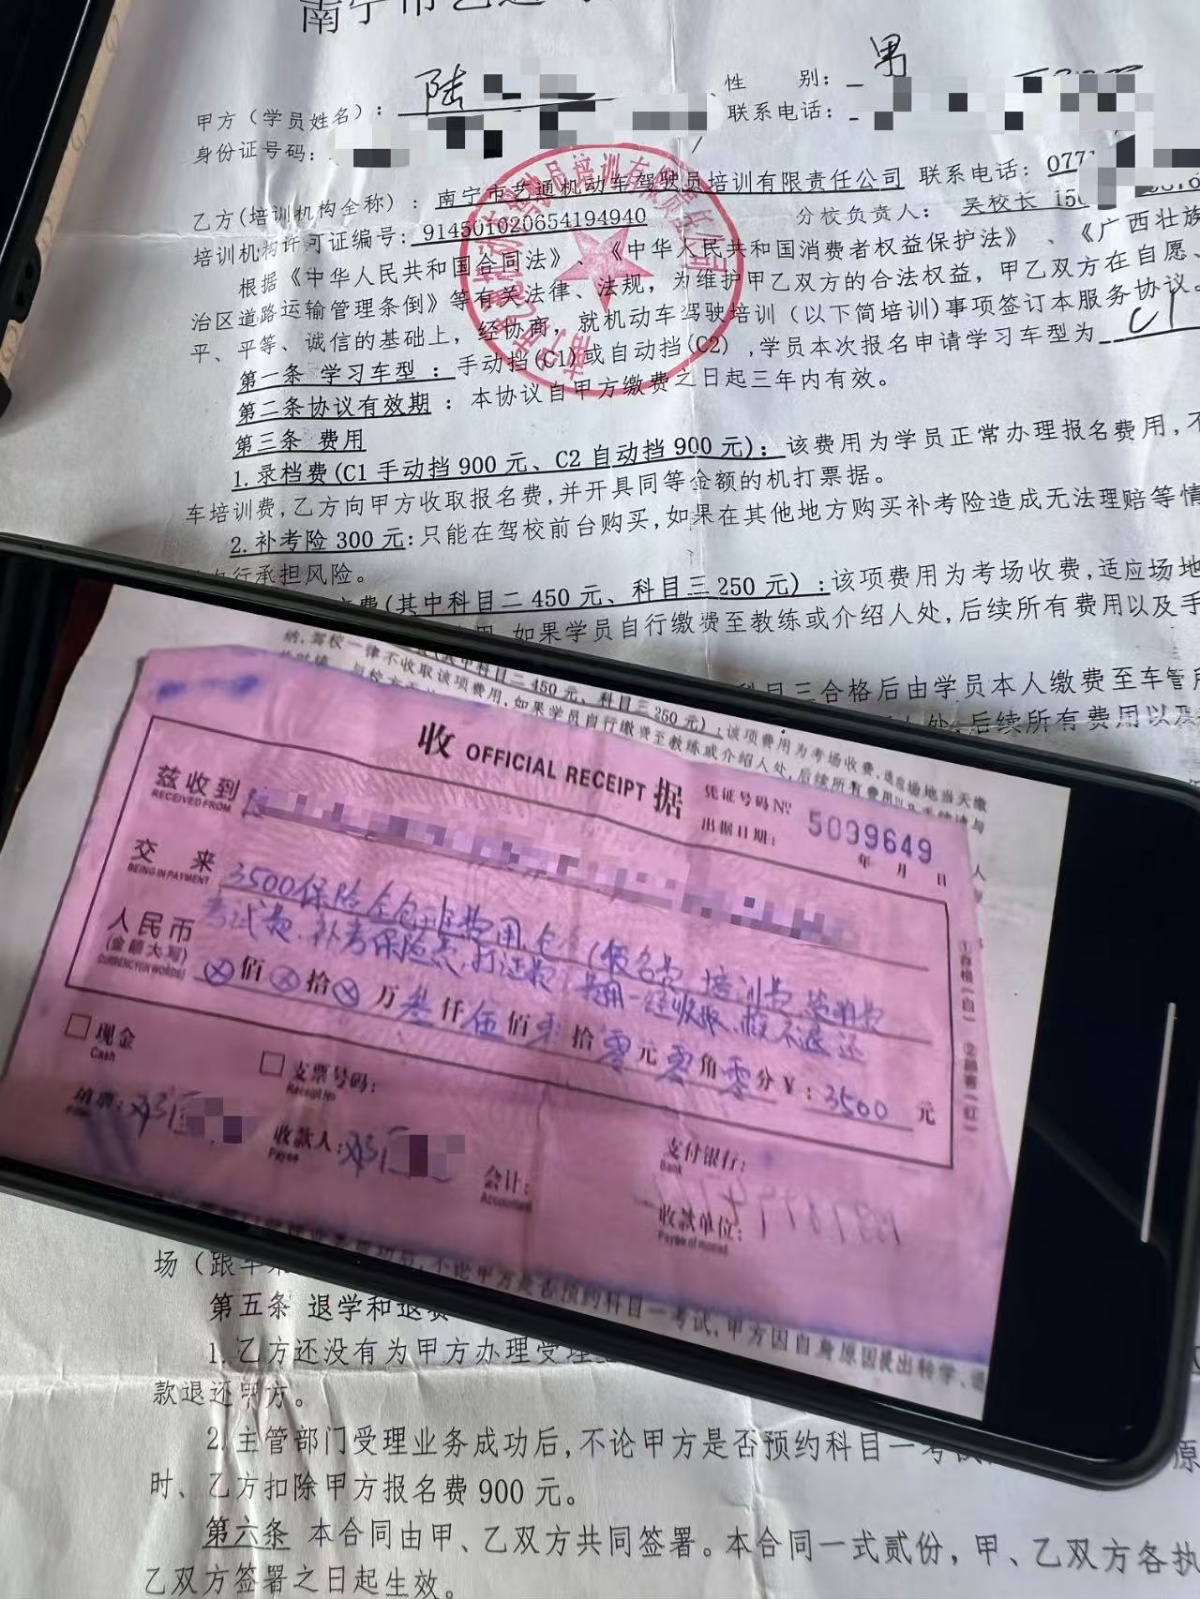 南宁市艺通
甲方（学员姓名）：陆
性 别：男
身份证号码：
联系电话：
乙方(培训机构全称)：南宁市艺通机动车驾驶员培训有限责任公司 联系电话：077
培训机构许可证编号: 914501020654194940 分校负责人： 吴校长 15
根据《中华人民共和国合同法》、《中华人民共和国消费者权益保护法》、《广西壮族
治区道路运输管理条例》等有关法律、法规，为维护甲乙双方的合法权益，甲乙双方在自愿、
平、平等、诚信的基础上，经协商，就机动车驾驶培训（以下简培训)事项签订本服务协议。
第一条 学习车型 ：手动挡(C1)或自动挡(C2)，学员本次报名申请学习车型为 C1
第二条协议有效期 ：本协议自甲方缴费之日起三年内有效。
第三条 费用
1.录档费(C1手动挡900元、C2自动挡900元)：该费用为学员正常办理报名费用，不
车培训费,乙方向甲方收取报名费,并开具同等金额的机打票据。
2.补考险300元:只能在驾校前台购买,如果在其他地方购买补考险造成无法理赔等情
行承担风险。
费(其中科目二450元、科目三250元)：该项费用为考场收费,适应场地
如果学员自行缴费至教练或介绍人处,后续所有费用以及手
科目三合格后由学员本人缴费至车管所
人处,后续所有费用以及
(其中科目二450元、科目三250元)：该项费用为考场收费,适应场地当天缴
纳,驾校一律不收取该项费用,如果学员自行缴费至教练或介绍人处,后续所有费用以及手续请与
收 OFFICIAL RECEIPT 据
凭证号码№ 5099649
出据日期： 年 月 日
兹收到
RECEIVED FROM
交 来 3500保险全包班费用包（报名费 培训费 资料费
BEING IN PAYMENT
考试费.补考保险费.打证费 费用一经收取.概不退还
人民币
(金额大写)
CURRENCY(IN WORDS)
⊗佰⊗拾⊗万叁仟伍佰零拾零元零角零分￥：3500 元
①存根（白） ②顾客（红）
现金
Cash
支票号码：
Receipt No
支付银行：
Bank
填票：邓
收款人：邓
Payee
会计：
Accountant
收款单位：
不论甲方是否预约科目一考试,甲方因自身原因提出转学、退
场（跟车
第五条 退学和退费
1.乙方还没有为甲方办理受理
款退还甲方。
2.主管部门受理业务成功后,不论甲方是否预约科目一考试
时、乙方扣除甲方报名费900元。
第六条 本合同由甲、乙双方共同签署。本合同一式贰份，甲、乙双方各执
乙双方签署之日起生效。